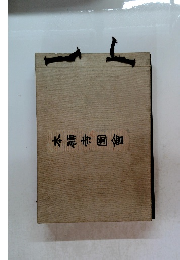 本願寺圖會